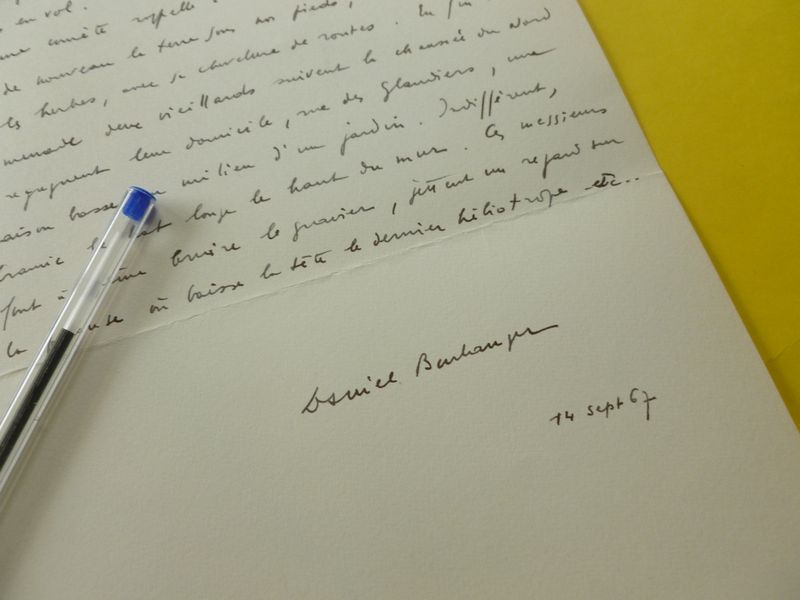 en vol.
une comète rappelle
de nouveau la terre sous nos pieds,
les herbes, avec sa chevelure de routes. En fin
menade deux vieillards suivent la chaussée du Nord
regagnent leur domicile, rue des Glandiers, une
maison basse au milieu d'un jardin. Indifférent,
longe le haut du mur. Ces messieurs
font à bruire le gravier, jettent un regard sur
la où baisse la tête le dernier héliotrope etc..
Daniel Boulanger
14 sept 67